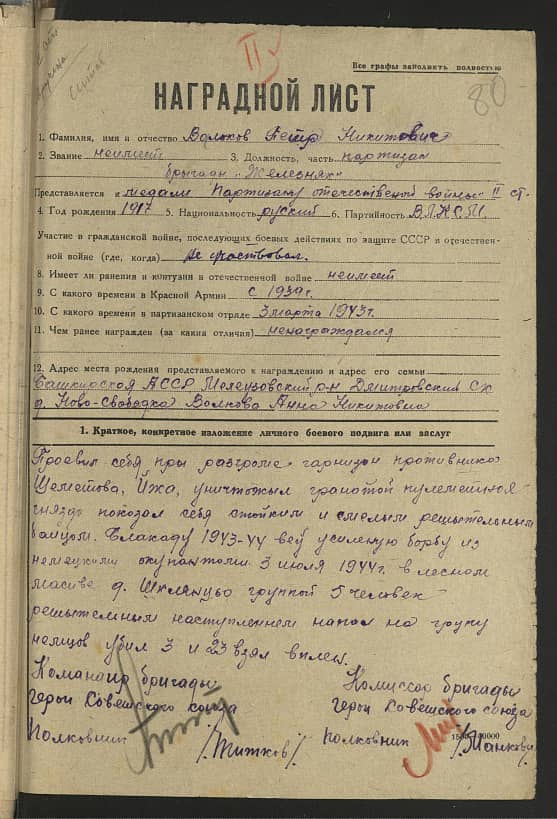 II
Все графы заполнять полностью
80
НАГРАДНОЙ ЛИСТ
1. Фамилия, имя и отчество Волков Петр Никитович
2. Звание неимеет 3. Должность, часть партизан
бригады „Железняк"
Представляется к медали "Партизану отечественной войны" II ст.
4. Год рождения 1917 5. Национальность руский 6. Партийность ВЛКСМ.
Участие в гражданской войне, последующих боевых действиях по защите СССР и отечествен-
ной войне (где, когда) Не участвовал.
8. Имеет ли ранения и контузии в отечественной войне неимеет
9. С какого времени в Красной Армии с 1939г.
10. С какого времени в партизанском отряде 3 марта 1943г.
11. Чем ранее награжден (за какия отличия) ненаграждался
12. Адрес места рождения представляемого к награждению и адрес его семьи
Башкирская АССР Мелеузовский р-н Дмитровский СХ
д. Ново-Свободка Волкова Анна Никитовна
1. Краткое, конкретное изложение личного боевого подвига или заслуг
Проевил себя пры разгроме гарнизон противника
Щеметова, Ижа, уничтожыл гранотой пулеметная
гнязда показал себя стойким и смелым решытельным
бойцом. Блакаду 1943-44 вёў усиленую борбу из
немецкими окупантоми 3 июля 1944г. в лесном
масиве д. Шклянцы группой 5 человек
решытельным наступлением напал на групу
немцов убил 3 и 23 взял в плен.
Командир бригады
герой Советского союза
Полковник /Титков/
Комиссар бригады
герой Советского союза
полковник /Манкович